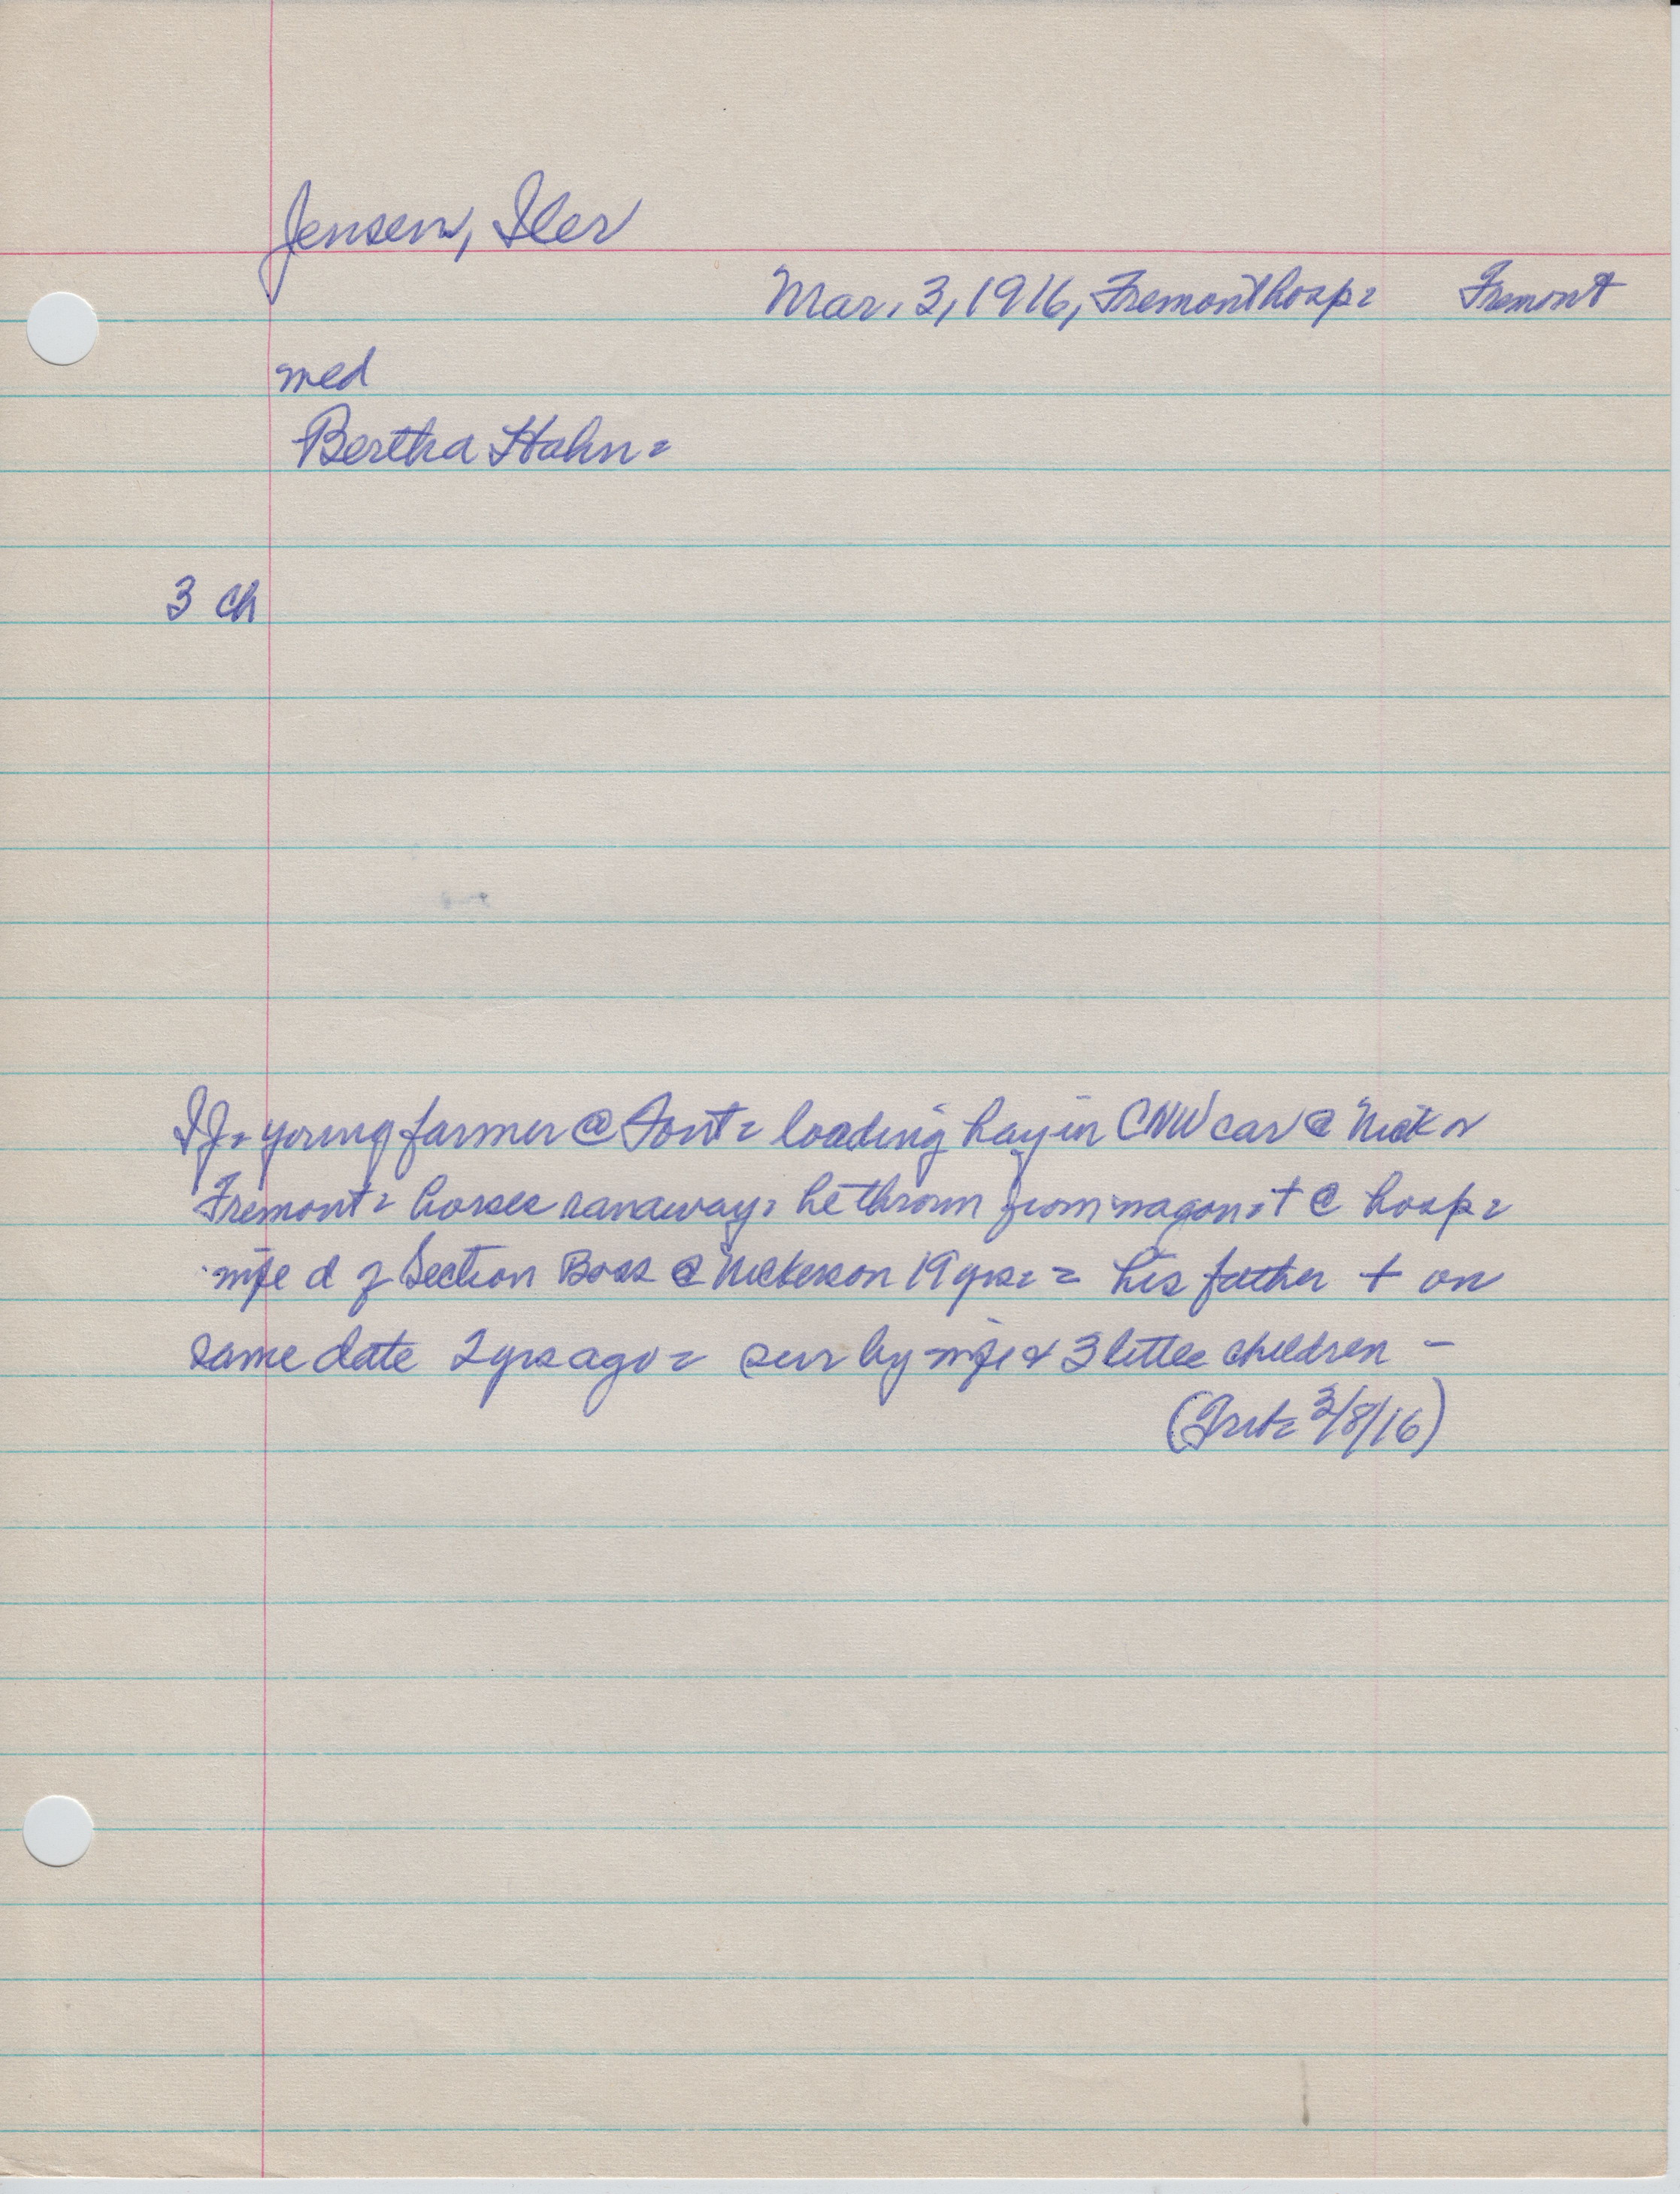 Jensen, Iler
Mar. 3, 1916, Fremont hosp = Fremont
med
Bertha Hahn =
3 ch
IJ = young farmer @ Font = loading hay in CNW car @ Nick n
Fremont = horses ranaway = he thrown from wagon = + @ hosp =
wife d of Section Boss @ Nickerson 19 yrs = = his father + on
same date 2 yrs ago = sur by wife & 3 little children -
(Trib = 3/8/16)